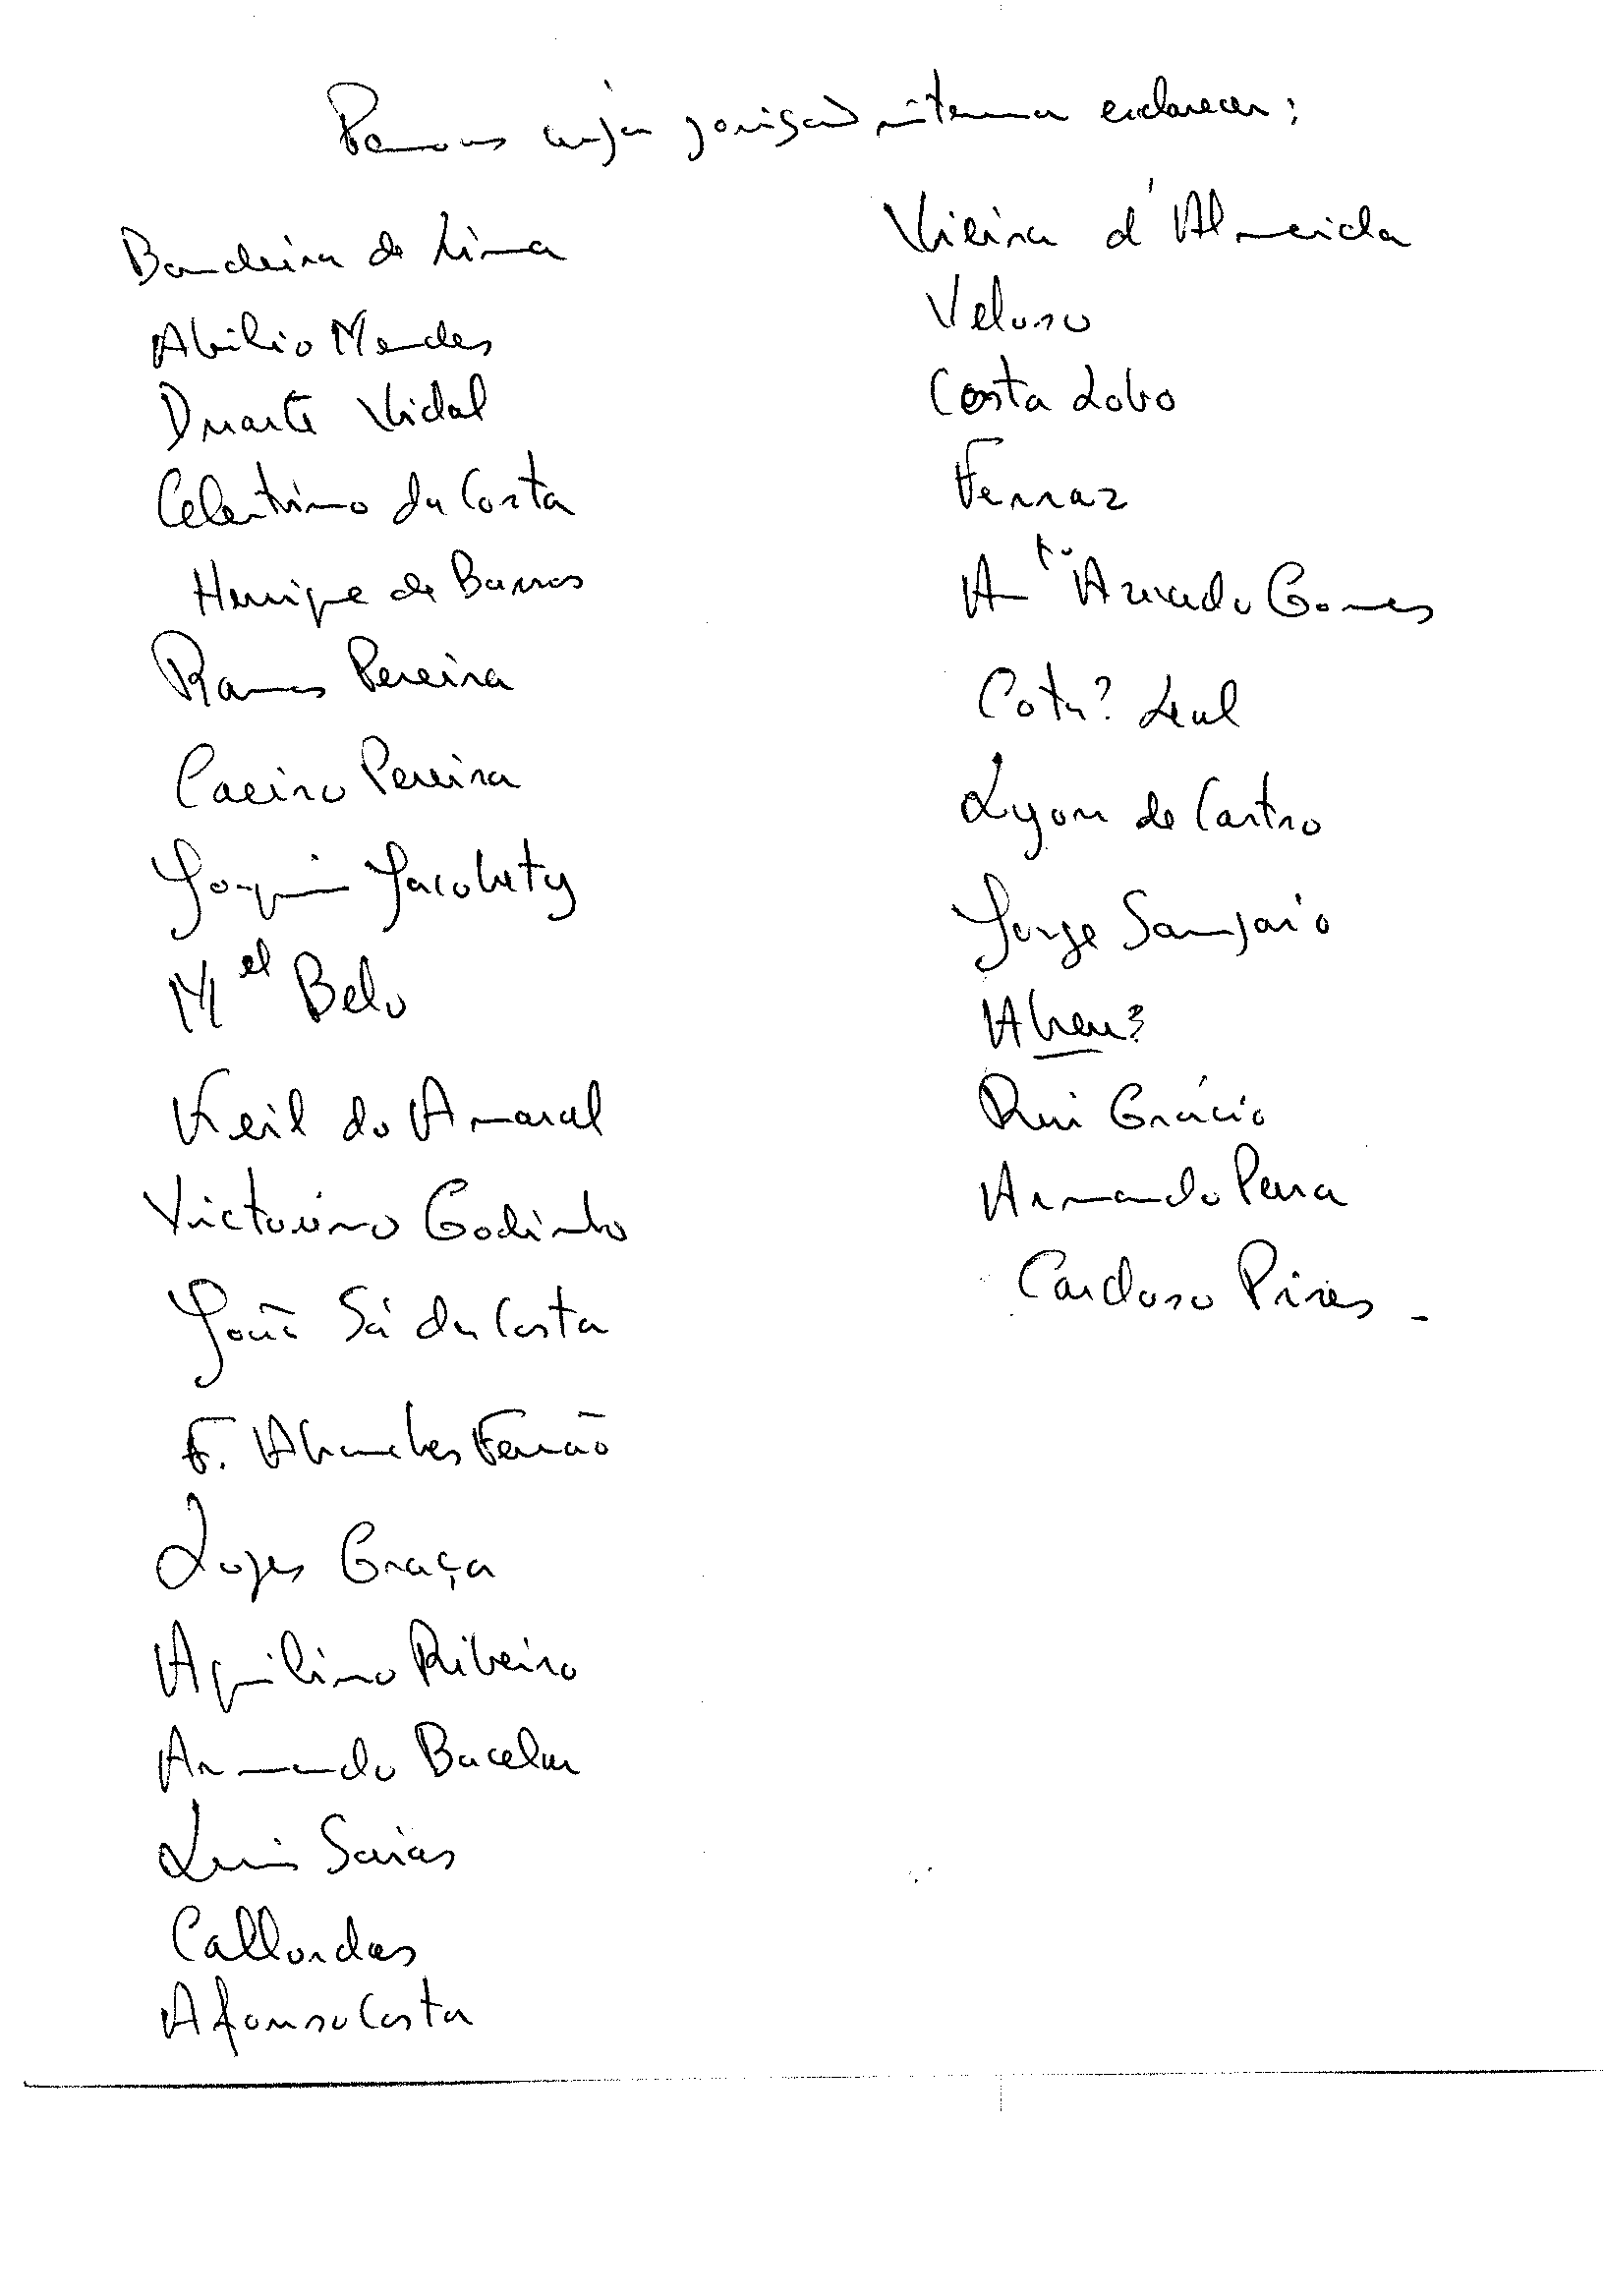 Pessoas cuja posição interessa esclarecer:
Bandeira de Lima
Abílio Mendes
Duarte Vidal
Celestino da Costa
Henrique de Barros
Ramos Pereira
Caeiro Pereira
Joaquim Jacobety
Mel Belo
Keil do Amaral
Victorino Godinho
João Sá da Costa
F. Abranches Ferrão
Lopes Graça
Aquilino Ribeiro
Armando Bacelar
Luis Saias
Callondas
Afonso Costa
Vieira d'Almeida
Veloso
Costa Lobo
Ferraz
Anto Azevedo Gomes
Cota? Leal
Lyon de Castro
Jorge Sampaio
Abreu?
Rui Grácio
Armando
Cardoso Pires -